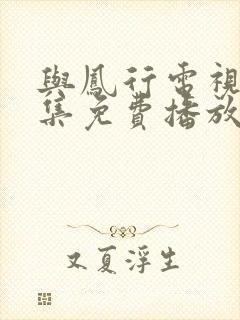 與鳳行電視
集免費播放
又夏浮生